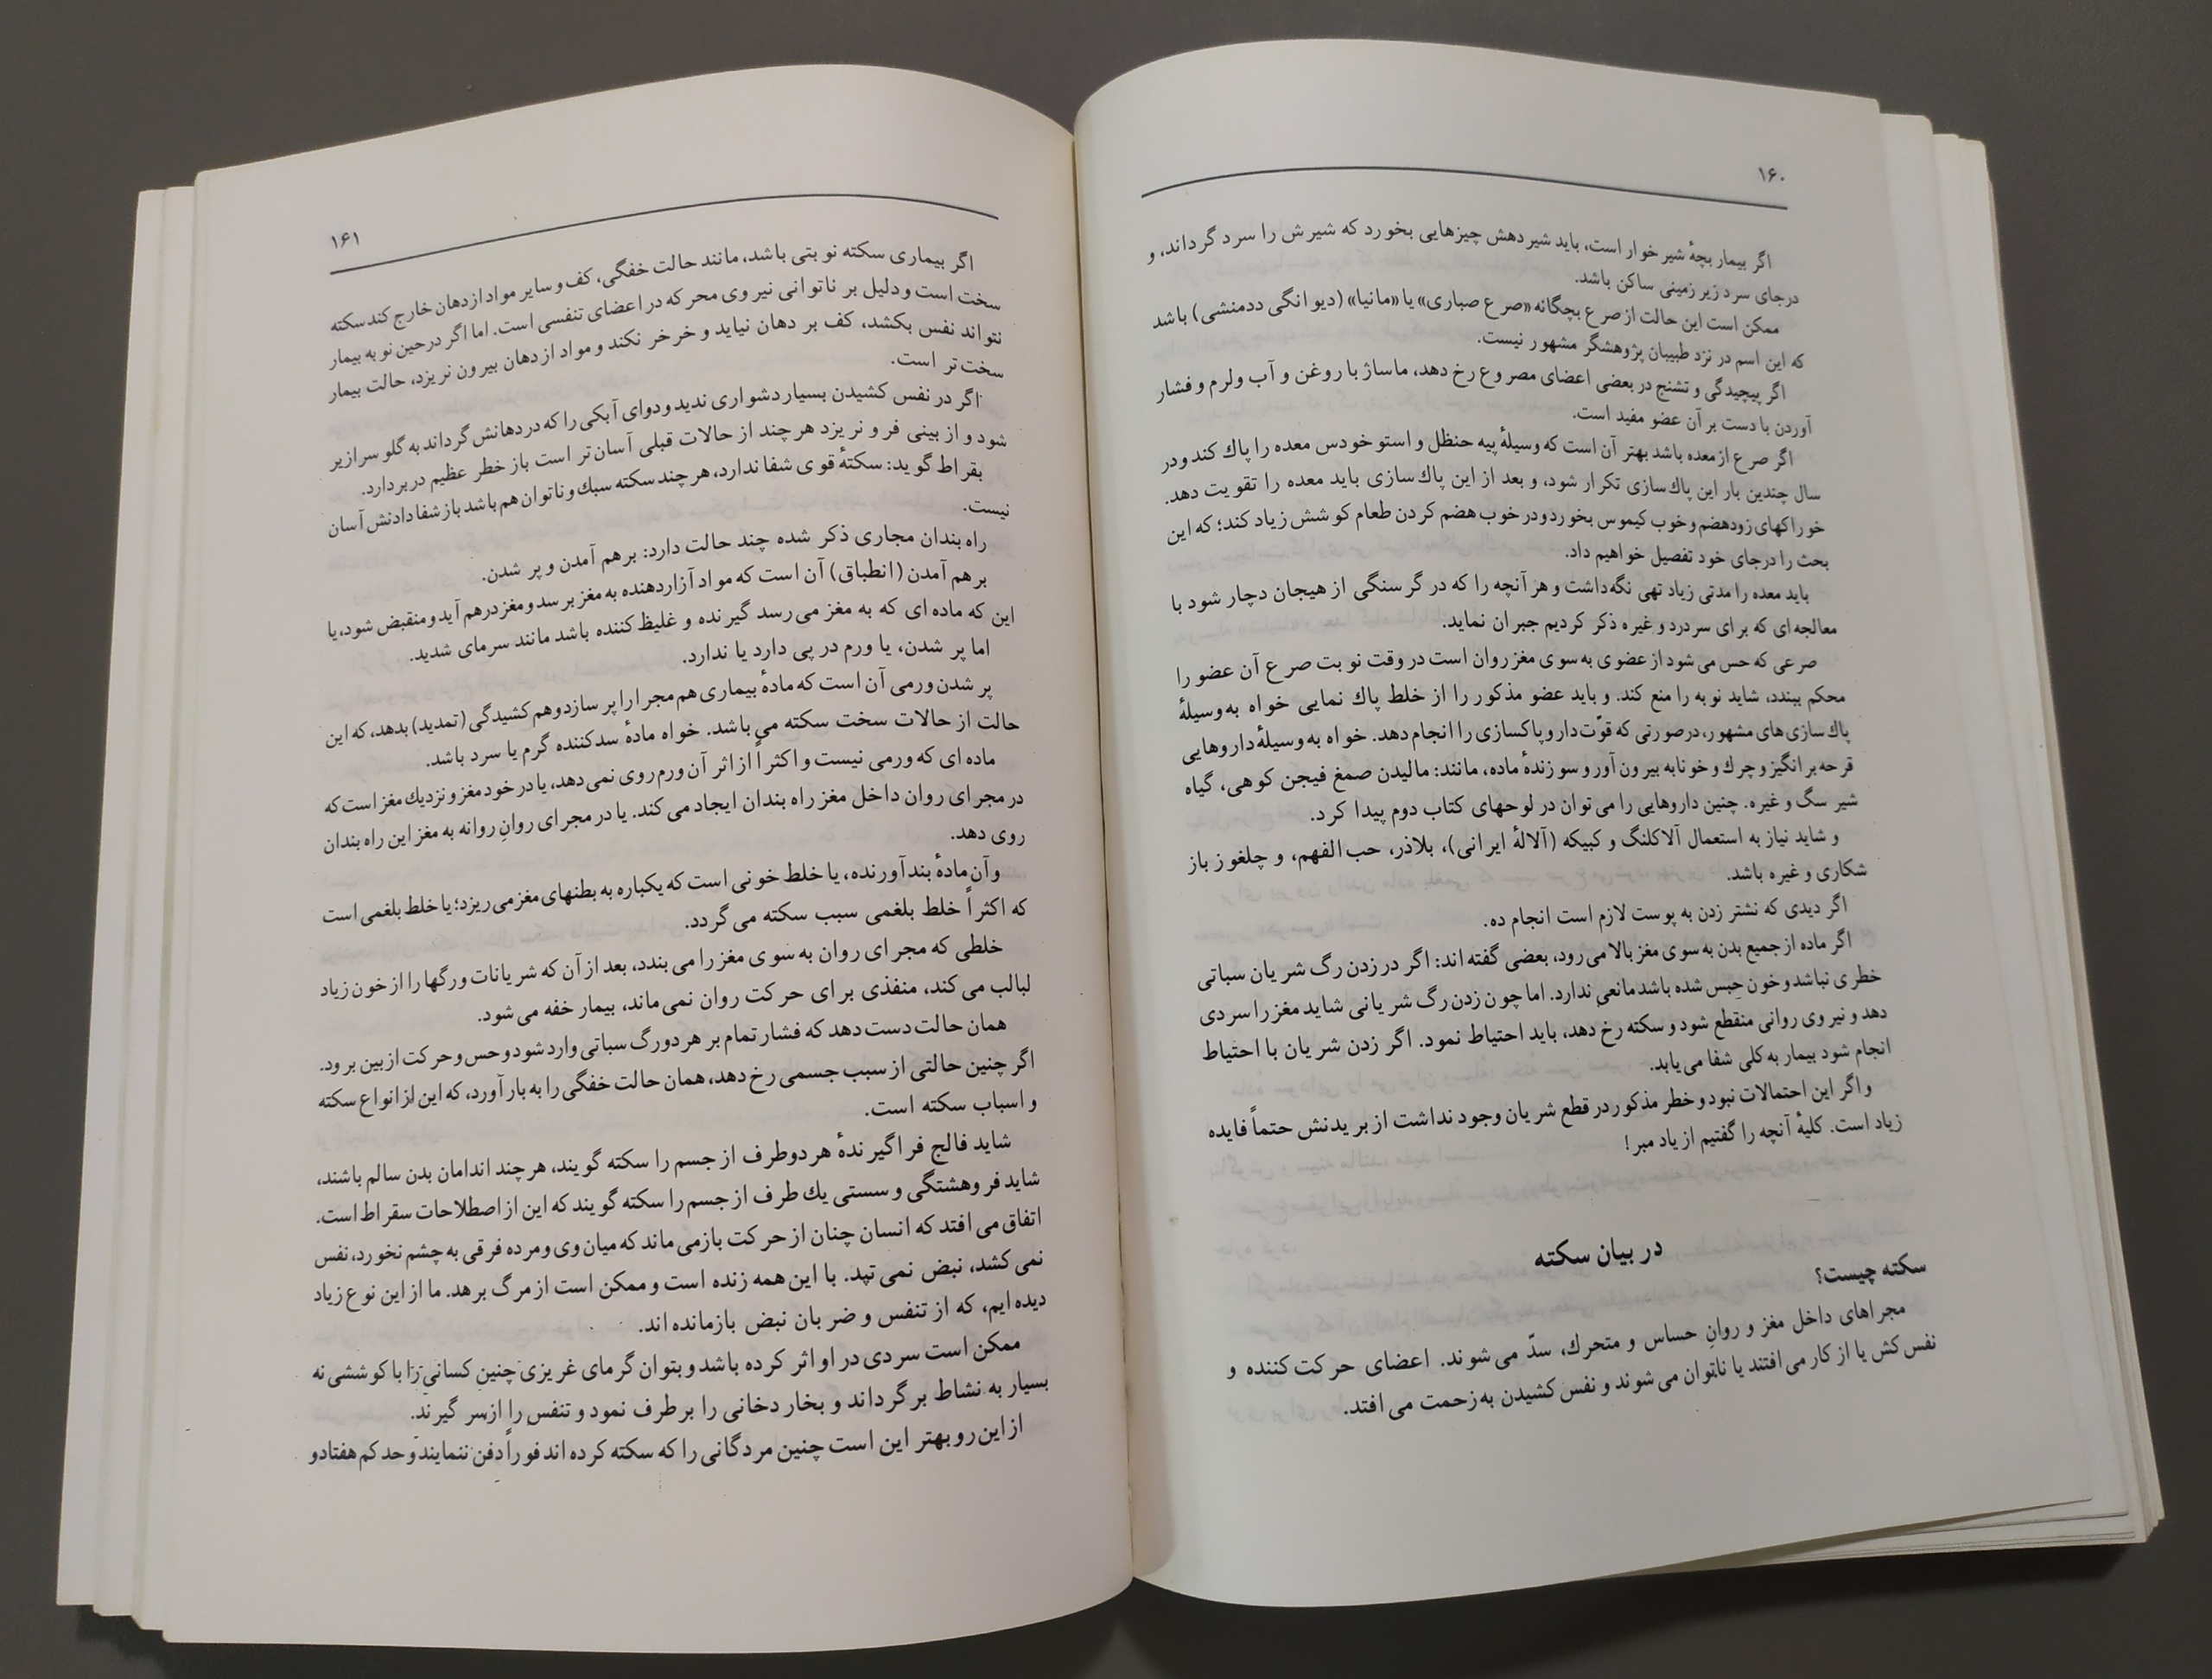 ۱۶۰
اگر بیمار بچهٔ شیرخوار است، باید شیردهش چیزهایی بخورد که شیرش را سرد گرداند، و
درجای سرد زیرزمینی ساکن باشد.
ممکن است این حالت از صرع بچگانه «صرع صباری» یا «مانیا» (دیوانگی ددمنشی) باشد
که این اسم در نزد طبیبان پژوهشگر مشهور نیست.
اگر پیچیدگی و تشنج در بعضی اعضای مصروع رخ دهد، ماساژ با روغن و آب ولرم و فشار
آوردن با دست بر آن عضو مفید است.
اگر صرع از معده باشد بهتر آن است که وسیلهٔ پیه حنظل و استوخودس معده را پاك کند و در
سال چندین بار این پاك‌سازی تکرار شود، و بعد از این پاك‌سازی باید معده را تقویت دهد.
خوراکهای زودهضم و خوب کیموس بخورد و در خوب هضم کردن طعام کوشش زیاد کند؛ که این
بحث را درجای خود تفصیل خواهیم داد.
باید معده را مدتی زیاد تهی نگه‌داشت و هر آنچه را که در گرسنگی از هیجان دچار شود با
معالجه‌ای که برای سردرد و غیره ذکر کردیم جبران نماید.
صرعی که حس می‌شود از عضوی به‌سوی مغز روان است در وقت نوبت صرع آن عضو را
محکم ببندد، شاید نوبه را منع کند. و باید عضو مذکور را از خلط پاك نمایی خواه به‌وسیلهٔ
پاك‌سازی‌های مشهور، درصورتی که قوّت دارو پاکسازی را انجام دهد. خواه به‌وسیلهٔ داروهایی
قرحه برانگیز و چرك و خونابه بیرون‌آور و سوزندهٔ ماده، مانند: مالیدن صمغ فیجن کوهی، گیاه
شیر سگ و غیره. چنین داروهایی را می‌توان در لوحهای کتاب دوم پیدا کرد.
و شاید نیاز به استعمال آلاکلنگ و کبیکه (آلالهٔ ایرانی)، بلاذر، حب‌الفهم، و چلغوز باز
شکاری و غیره باشد.
اگر دیدی که نشتر زدن به پوست لازم است انجام ده.
اگر ماده از جمیع بدن به سوی مغز بالا می‌رود، بعضی گفته‌اند: اگر در زدن رگ شریان سباتی
خطری نباشد و خون حبس شده باشد مانعی ندارد. اما چون زدن رگ شریانی شاید مغز را سردی
دهد و نیروی روانی منقطع شود و سکته رخ دهد، باید احتیاط نمود. اگر زدن شریان با احتیاط
انجام شود بیمار به‌کلی شفا می‌یابد.
و اگر این احتمالات نبود و خطر مذکور در قطع شریان وجود نداشت از بریدنش حتماً فایده
زیاد است. کلیهٔ آنچه را گفتیم از یاد مبر!
در بیان سکته
سکته چیست؟
مجراهای داخل مغز و روانِ حساس و متحرك، سدّ می‌شوند. اعضای حرکت‌کننده و
نفس‌کش یا از کار می‌افتند یا ناتوان می‌شوند و نفس کشیدن به‌زحمت می‌افتد.
۱۶۱
اگر بیماری سکته نوبتی باشد، مانند حالت خفگی، کف و سایر مواد از دهان خارج کند سکته
سخت است و دلیل بر ناتوانی نیروی محرکه در اعضای تنفسی است. اما اگر درحین نوبه بیمار
نتواند نفس بکشد، کف بر دهان نیاید و خرخر نکند و مواد از دهان بیرون نریزد، حالت بیمار
سخت‌تر است.
اگر در نفس کشیدن بسیار دشواری ندید و دوای آبکی را که در دهانش گرداند به گلو سرازیر
شود و از بینی فرو نریزد هرچند از حالات قبلی آسان‌تر است باز خطر عظیم دربردارد.
بقراط گوید: سکتهٔ قوی شفا ندارد، هرچند سکته سبك و ناتوان هم باشد باز شفا دادنش آسان
نیست.
راه بندان مجاری ذکر شده چند حالت دارد: برهم آمدن و پر شدن.
برهم آمدن (انطباق) آن است که مواد آزاردهنده به مغز برسد و مغز درهم آید و منقبض شود، یا
این که ماده‌ای که به مغز می‌رسد گیرنده و غلیظ‌کننده باشد مانند سرمای شدید.
اما پر شدن، یا ورم در پی دارد یا ندارد.
پر شدن ورمی آن است که مادهٔ بیماری هم مجرا را پر سازد و هم کشیدگی (تمدید) بدهد، که این
حالت از حالات سخت سکته می‌باشد. خواه مادهٔ سدکننده گرم یا سرد باشد.
ماده‌ای که ورمی نیست و اکثراً از اثر آن ورم روی نمی‌دهد، یا در خود مغز و نزدیك مغز است که
در مجرای روان داخل مغز راه بندان ایجاد می‌کند. یا در مجرای روانِ روانه به مغز این راه بندان
روی دهد.
و آن مادهٔ بندآورنده، یا خلط خونی است که یکباره به بطنهای مغز می‌ریزد؛ یا خلط بلغمی است
که اکثراً خلط بلغمی سبب سکته می‌گردد.
خلطی که مجرای روان به سوی مغز را می‌بندد، بعد از آن که شریانات و رگها را از خون زیاد
لبالب می‌کند، منفذی برای حرکت روان نمی‌ماند، بیمار خفه می‌شود.
همان حالت دست دهد که فشار تمام بر هر دو رگ سباتی وارد شود و حس و حرکت ازبین برود.
اگر چنین حالتی از سبب جسمی رخ دهد، همان حالت خفگی را به بار آورد، که این از انواع سکته
و اسباب سکته است.
شاید فالج فراگیرندهٔ هر دو طرف از جسم را سکته گویند، هرچند اندامان بدن سالم باشند،
شاید فروهشتگی و سستی یك طرف از جسم را سکته گویند که این از اصطلاحات سقراط است.
اتفاق می‌افتد که انسان چنان از حرکت بازمی‌ماند که میان وی و مرده فرقی به چشم نخورد، نفس
نمی‌کشد، نبض نمی‌تپد. با این همه زنده است و ممکن است از مرگ برهد. ما از این نوع زیاد
دیده‌ایم، که از تنفس و ضربان نبض بازمانده‌اند.
ممکن است سردی در او اثر کرده باشد و بتوان گرمای غریزی چنین کسانی را با کوششی نه
بسیار به نشاط برگرداند و بخار دخانی را برطرف نمود و تنفس را از سر گیرند.
از این رو بهتر این است چنین مردگانی را که سکته کرده‌اند فوراً دفن ننمایند و حد کم هفتاد و